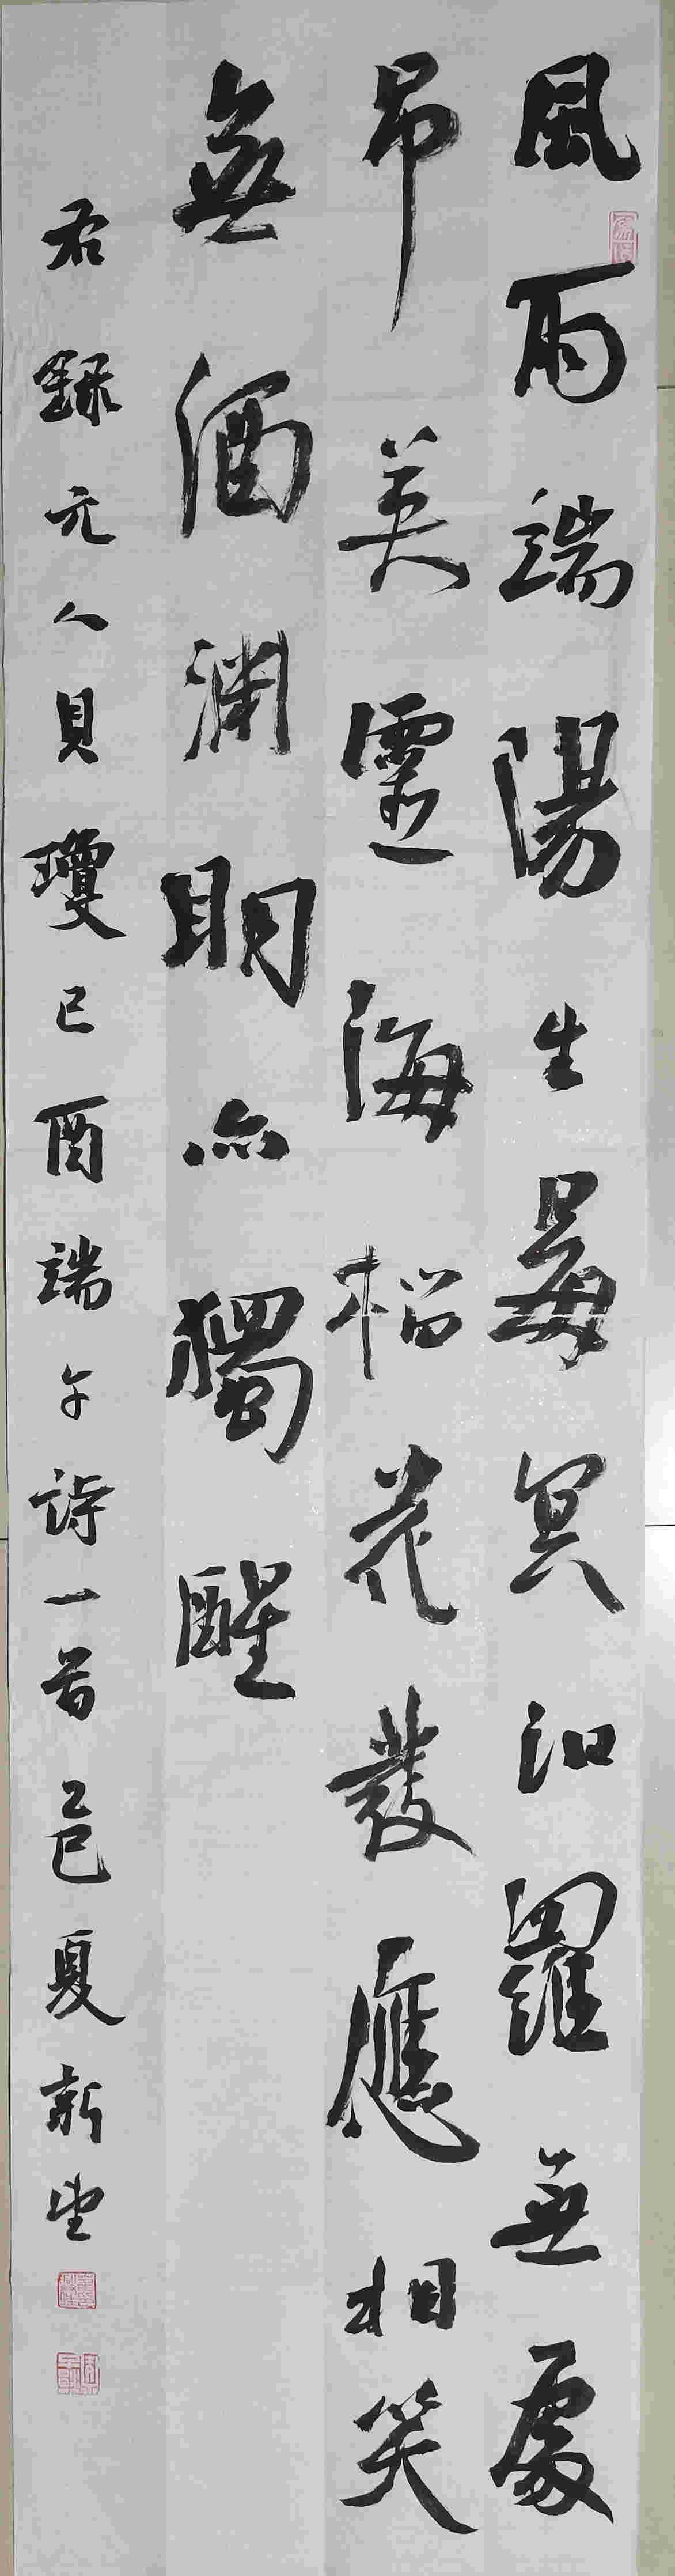 風雨端陽生晦冥汨羅無處
吊英靈海榴花發應相笑
無酒淵明亦獨醒
右録元人貝瓊已酉端午詩一首乙巳夏新生